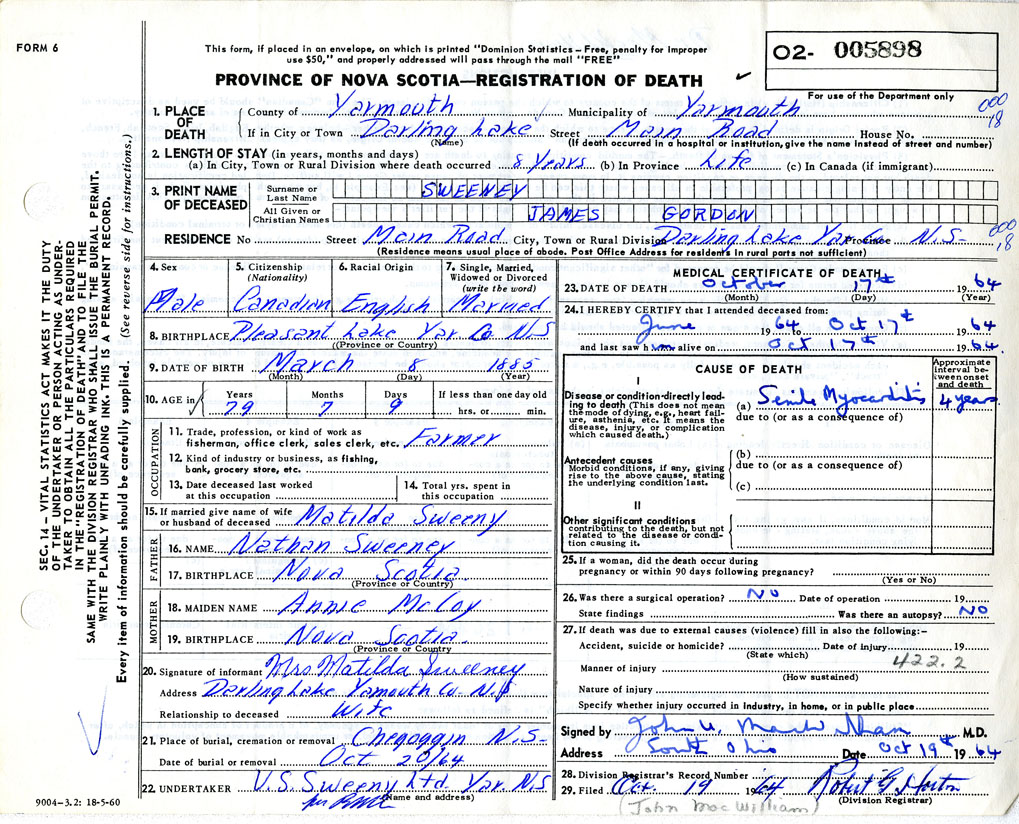 FORM 6
This form, if placed in an envelope, on which is printed "Dominion Statistics – Free, penalty for improper
use $50," and properly addressed will pass through the mail "FREE"
PROVINCE OF NOVA SCOTIA—REGISTRATION OF DEATH
02- 005898
For use of the Department only
SEC. 14 – VITAL STATISTICS ACT MAKES IT THE DUTY
OF THE UNDERTAKER OR PERSON ACTING AS UNDER-
TAKER TO OBTAIN ALL THE PARTICULARS REQUIRED
IN THE "REGISTRATION OF DEATH" AND TO FILE THE
SAME WITH THE DIVISION REGISTRAR WHO SHALL ISSUE THE BURIAL PERMIT.
WRITE PLAINLY WITH UNFADING INK. THIS IS A PERMANENT RECORD.
Every item of information should be carefully supplied. (See reverse side for instructions.)
1. PLACE OF DEATH
County of Yarmouth Municipality of Yarmouth 000 18
If in City or Town Darling Lake Street Main Road House No.
(Name) (If death occurred in a hospital or institution, give the name instead of street and number)
2. LENGTH OF STAY (in years, months and days)
(a) In City, Town or Rural Division where death occurred 8 Years (b) In Province Life (c) In Canada (if immigrant)
3. PRINT NAME OF DECEASED
Surname or Last Name SWEENEY
All Given or Christian Names JAMES GORDON
RESIDENCE No Street Main Road City, Town or Rural Division Darling Lake Yar Co Province N.S- 000 18
(Residence means usual place of abode. Post Office Address for residents in rural parts not sufficient)
4. Sex Male
5. Citizenship (Nationality) Canadian
6. Racial Origin English
7. Single, Married, Widowed or Divorced (write the word) Married
8. BIRTHPLACE Pleasant Lake Yar Co N.S
(Province or Country)
9. DATE OF BIRTH March 8 1885
(Month) (Day) (Year)
10. AGE in Years 79 Months 7 Days 9 If less than one day old hrs. or min.
OCCUPATION
11. Trade, profession, or kind of work as fisherman, office clerk, sales clerk, etc. Farmer
12. Kind of industry or business, as fishing, bank, grocery store, etc.
13. Date deceased last worked at this occupation
14. Total yrs. spent in this occupation
15. If married give name of wife or husband of deceased Matilda Sweeny
FATHER
16. NAME Nathan Sweeney
17. BIRTHPLACE Nova Scotia
(Province or Country)
MOTHER
18. MAIDEN NAME Annie McCoy
19. BIRTHPLACE Nova Scotia
(Province or Country)
20. Signature of informant Mrs. Matilda Sweeney
Address Darling Lake Yarmouth Co. N.S
Relationship to deceased Wife
21. Place of burial, cremation or removal Chegoggin N.S-
Date of burial or removal Oct 20/64
22. UNDERTAKER V.S. Sweeny Ltd Yar. N.S
(Name and address)
9004–3.2: 18-5-60
MEDICAL CERTIFICATE OF DEATH
23. DATE OF DEATH October 17th 1964
(Month) (Day) (Year)
24. I HEREBY CERTIFY that I attended deceased from:
June 1964 to Oct 17th 1964
and last saw him alive on Oct 17th 1964.
CAUSE OF DEATH
Approximate interval between onset and death
I
Disease or condition directly leading to death (This does not mean the mode of dying, e.g., heart failure, asthenia, etc. It means the disease, injury, or complication which caused death.)
(a) Senile Myocarditis 4 years
due to (or as a consequence of)
Antecedent causes
Morbid conditions, if any, giving rise to the above cause, stating the underlying condition last.
(b)
due to (or as a consequence of)
(c)
II
Other significant conditions
contributing to the death, but not related to the disease or condition causing it.
25. If a woman, did the death occur during
pregnancy or within 90 days following pregnancy?
(Yes or No)
26. Was there a surgical operation? NO Date of operation 19
State findings Was there an autopsy? NO
27. If death was due to external causes (violence) fill in also the following:–
Accident, suicide or homicide? Date of injury 19
(State which) 422.2
Manner of injury
(How sustained)
Nature of injury
Specify whether injury occurred in industry, in home, or in public place
Signed by John M.D.
Address South Ohio Date Oct 19th 1964
28. Division Registrar's Record Number
29. Filed Oct. 19 1964 Robert G Horton
(John MacWilliam) (Division Registrar)